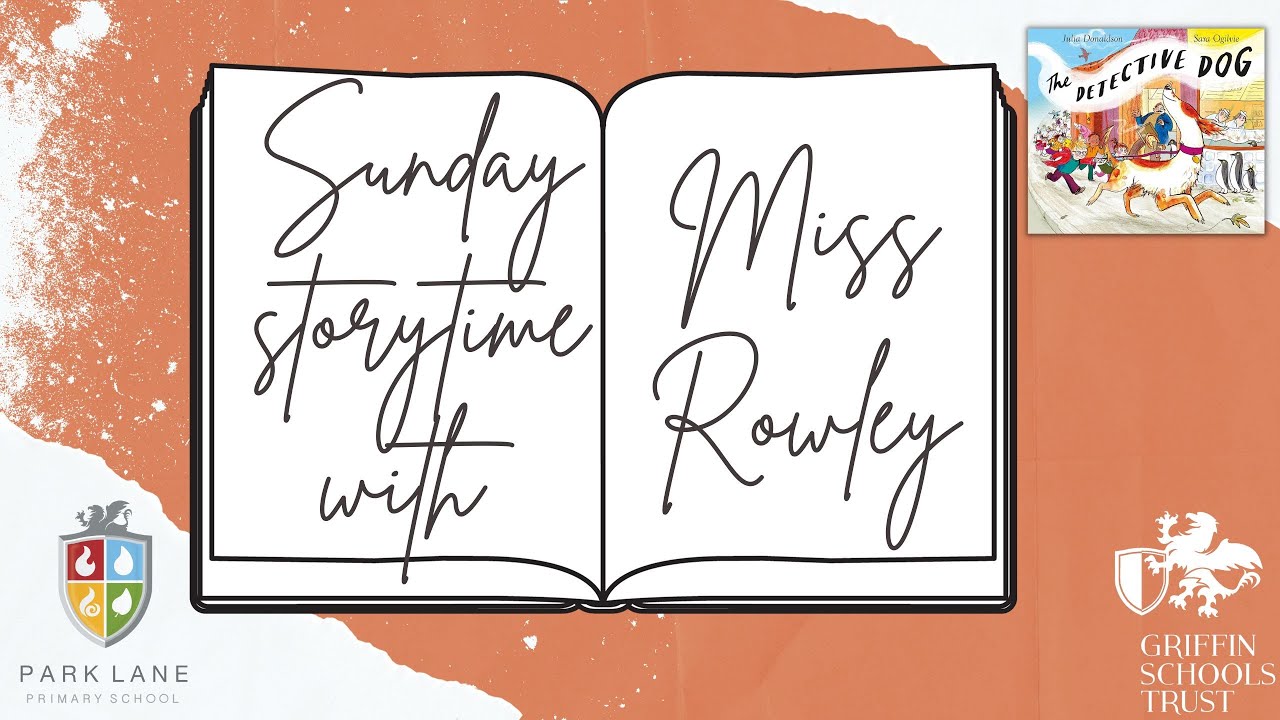 Sunday
storytime
with
Miss
Rowley
Julia Donaldson Sara Ogilvie
The DETECTIVE DOG
PARK LANE
PRIMARY SCHOOL
GRIFFIN
SCHOOLS
TRUST